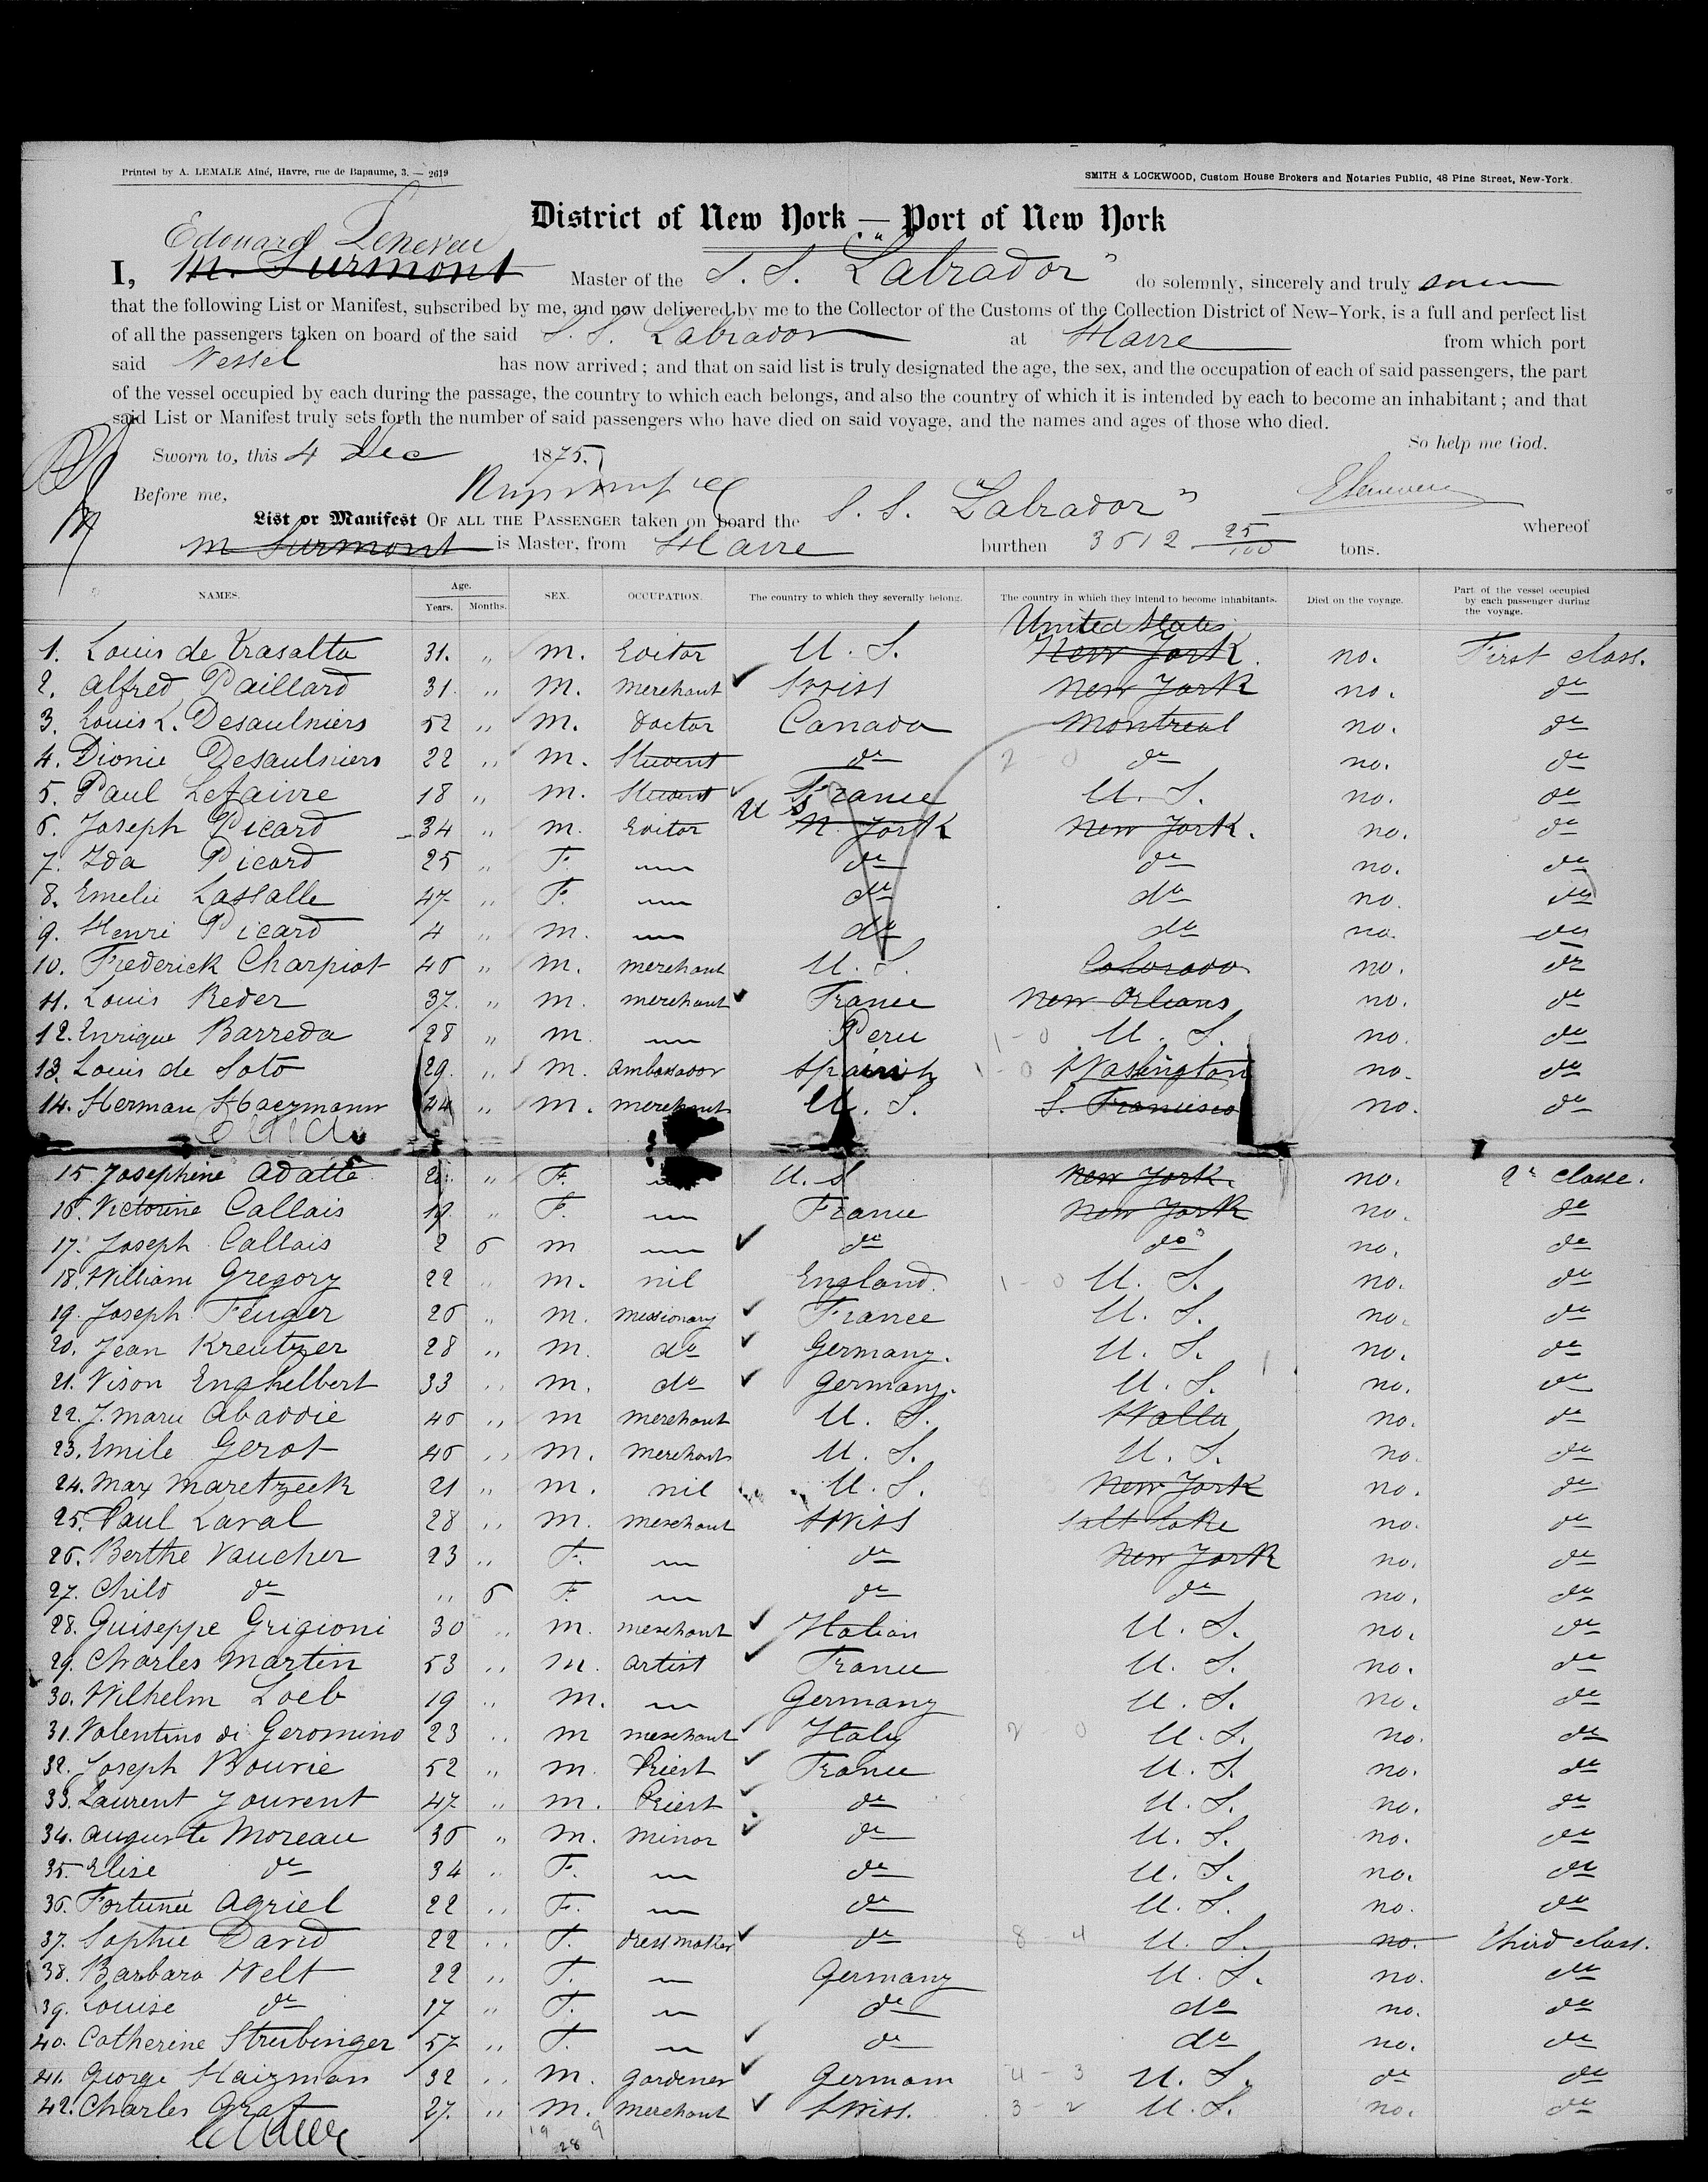 Printed by A. LEMALE Aîné, Havre, rue de Bapaume, 3. — 2619
SMITH & LOCKWOOD, Custom House Brokers and Notaries Public, 48 Pine Street, New-York.
District of New York — Port of New York
Edouard Leneveu
I, M. Surmont Master of the S. S. "Labrador" do solemnly, sincerely and truly
that the following List or Manifest, subscribed by me, and now delivered by me to the Collector of the Customs of the Collection District of New-York, is a full and perfect list
of all the passengers taken on board of the said S. S. Labrador at Havre from which port
said Vessel has now arrived ; and that on said list is truly designated the age, the sex, and the occupation of each of said passengers, the part
of the vessel occupied by each during the passage, the country to which each belongs, and also the country of which it is intended by each to become an inhabitant ; and that
said List or Manifest truly sets forth the number of said passengers who have died on said voyage, and the names and ages of those who died.
So help me God.
Sworn to, this 4 Dec 1875.
Before me,
List or Manifest OF ALL THE PASSENGER taken on board the S. S. "Labrador" whereof
M Surmont is Master, from Havre burthen 3512 25/100 tons.
NAMES. Age. Years. Months. SEX. OCCUPATION. The country to which they severally belong. The country in which they intend to become inhabitants. Died on the voyage. Part of the vessel occupied by each passenger during the voyage.
United States
1. Louis de Trasalto 31. " m. Editor U. S. New York. no. First class.
2. Alfred Paillard 31. " m. merchant Swiss New York no. do
3. Louis L. Desaulniers 52 " m. doctor Canada Montreal no. do
4. Dionie Desaulniers 22 " m. Student do do no. do
5. Paul Lefaivre 18 " m. Student France U. S. no. do
6. Joseph Picard 34 " m. Editor U S N. York New York. no. do
7. Ida Picard 25 " F. — do do no. do
8. Emelie Lassalle 47 " F. — do do no. do
9. Henri Picard 4 " m. — do do no. do
10. Frederick Charpiot 46 " m. merchant U. S. Colorado no. do
11. Louis Reder 37. " m. merchant France New Orleans no. do
12. Enrique Barreda 28 " m. — Peru U. S. no. do
13. Louis de Soto 29. " m. ambassador Spanish Washington no. do
14. Herman 24 " m. merchant U. S. S. Francisco no. do
15. Josephine Adatte " F. U. S New York. no. 2e classe.
16. Victorine Callais " F. — France New York no. do
17. Joseph Callais 2 6 m — do do no. do
18. William Gregory 22 " m. nil England. U. S. no. do
19. Joseph Feuger 26 " m. missionary France U. S. no. do
20. Jean Kreutzer 28 " m. do Germany. U. S. no. do
21. Vison Enghelbert 33 " m. do Germany. U. S. no. do
22. J. Marie Abaddie 46 " m merchant U. S. Walla no. do
23. Emile Gerot 46 " m. merchant U. S. U. S. no. do
24. Max Maretzeek 21 " m. nil U. S. New York no. do
25. Paul Laval 28 " m. merchant Swiss Salt Lake no. do
26. Berthe Vaucher 23 " F. — do New York no. do
27. Child do " 6 F. — do do no. do
28. Guiseppe Grigioni 30 " m. merchant Italian U. S. no. do
29. Charles Martin 53 " m. artist France U. S. no. do
30. Wilhelm Loeb 19 " m. — Germany U. S. no. do
31. Valentino di Geromino 23 " m merchant Italy U. S. no. do
32. Joseph Bourie 52 " m. Priest France U. S. no. do
33. Laurent Jouvent 47 " m. Priest do U. S. no. do
34. Auguste Moreau 36 " m. minor do U. S. no. do
35. Elise do 34 " F. — do U. S. no. do
36. Fortunée Agriel 22 " F. — do U. S. no. do
37. Sophie David 22 " F. dressmaker do U. S. no. third class.
38. Barbara Welt 22 " F. — Germany U. S. no. do
39. Louise do 17 " F. — do do no. do
40. Catherine Streibinger 57 " F. — do do no. do
41. George Haizman 32 " m. gardener German U. S. do do
42. Charles Graf 27. " m. merchant Swiss. U. S. no. do